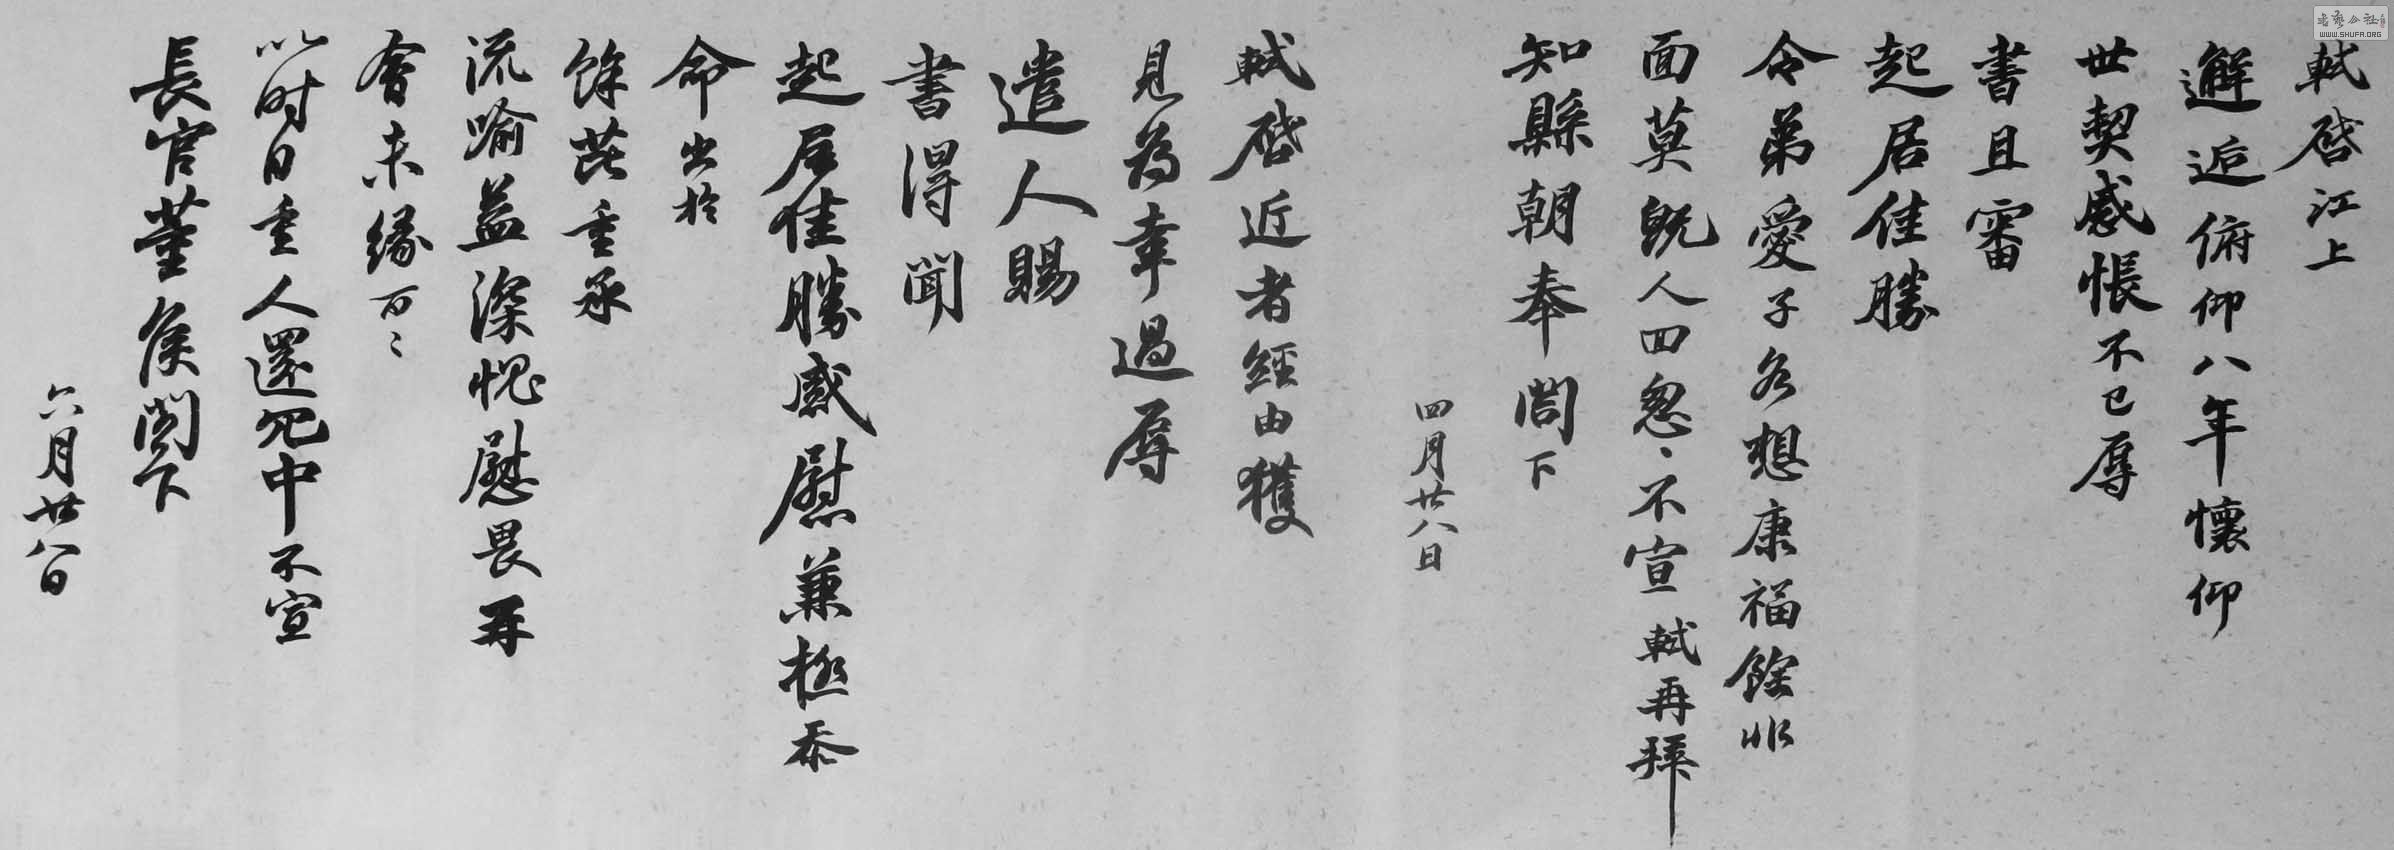 軾啓江上
邂逅俯仰八年懷仰
世契感悵不已辱
書且審
起居佳勝
令弟愛子各想康福餘非
面莫既人回怱〻不宣軾再拜
知縣朝奉閤下
四月廿八日
軾啓近者經由獲
見為幸過辱
遣人賜
書得聞
起居佳勝感慰兼極忝
命出於
餘芘重承
流喻益深愧慰畏再
會未緣萬〻
以時自重人還冗中不宣
長官董侯閣下
六月廿八日
書藝公社
WWW.SHUFA.ORG